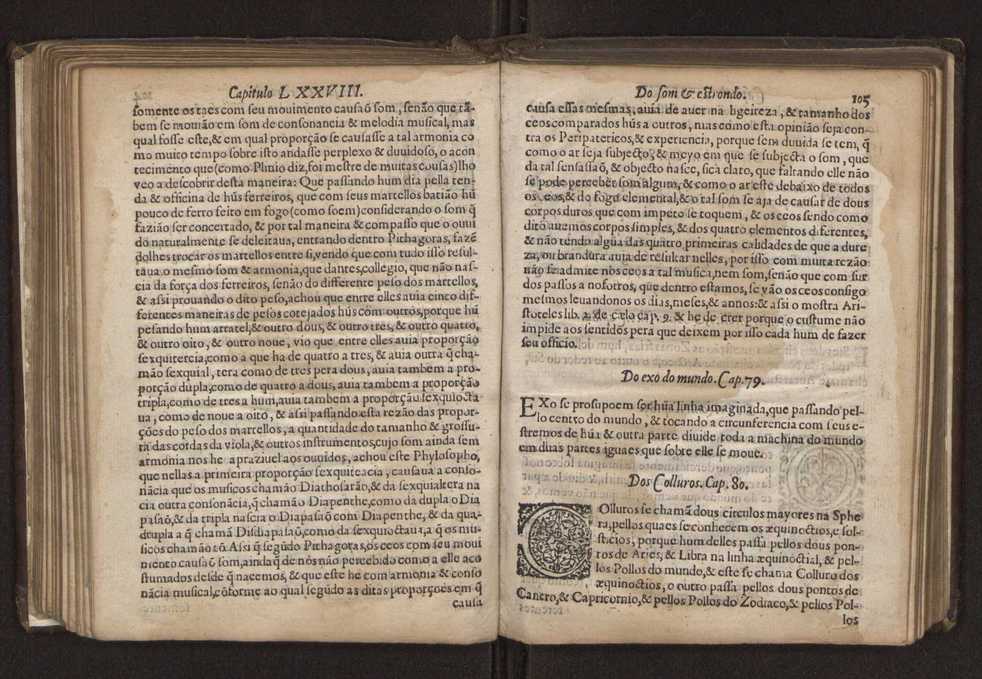 Capitulo L XXVIII.
somente os taes com seu movimento causaõ som, senão que tã-
bem se mouião em som de consonancia & melodia musical, mas
qual fosse este, & em qual proporção se causasse a tal armonia co
mo muito tempo sobre isto andasse perplexo & duuidoso, o acon
tecimento que (como Plinio diz, foi mestre de muitas cousas) lho
veo a descobrir desta maneira: Que passando hum dia pella ten-
da & officina de hũs ferreiros, que com seus martellos batião hũ
pouco de ferro feito em fogo (como soem) considerando o som q̃
fazião ser concertado, & por tal maneira & compasso que o ouui
do naturalmente se deleitaua, entrando dentro Pithagoras, fazẽ
dolhes trocar os martellos entre si, vendo que com tudo isso resul-
taua o mesmo som & armonia, que dantes, collegio, que não nas-
cia da força dos ferreiros, senão do differente peso dos martellos,
& assi prouando o dito peso, achou que entre elles auia cinco dif-
ferentes maneiras de pesos cotejados hũs com outros, porque hũ
pesando hum arratel, & outro dous, & outro tres, & outro quatro,
& outro oito, & outro noue, vio que entre elles auia proporção
sexquitercia, como a que ha de quatro a tres, & auia outra q̃ cha-
mão sexquial, tera como de tres pera dous, auia tambem a pro-
porção dupla, como de quatro a dous, auia tambem a proporção
tripla, como de tres a hum, auia tambem a proporção sexquiocta
ua, como de noue a oito, & assi passando esta rezão das propor-
ções do peso dos martellos, a quantidade do tamanho & grossu-
ra das cordas da viola, & outros instrumentos, cujo som ainda sem
armonia nos he apraziuel aos ouuidos, achou este Phylosopho,
que nellas a primeira proporção sexquiteacia, causaua a conso-
nãcia que os musicos chamão Diathosarão, & da sexquialtera na
cia outra consonãcia, q̃ chamão Diapenthe, como da dupla o Dia
pasaõ, & da tripla nascia o Diapasaõ com Diapenthe, & da qua-
drupla a q̃ chamã Disdiapasaõ, como da sexquioctaua, a q̃ os mu-
sicos chamão tõ. Assi q̃ segũdo Pithagoras, os ceos com seu moui
miento causaõ som, ainda q̃ de nòs não percebido como a elle aco
stumados desde q̃ nacemos, & que este he com armonia & conso
nãcia musical, cõforme ao qual segũdo as ditas proporções em q̃
causa
Do som & estrondo. 105
causa essas mesmas, auia de auer na ligeireza, & tamanho dos
ceos comparados hũs a outros, mas como esta opinião seja con-
tra os Peripatericos, & experiencia, porque sem duuida se tem, q̃
como o ar seja subjecto, & meyo em que se subjecta o som, que
da tal sensassaõ, & objecto nasce, fica claro, que faltando elle não
se pode perceber som algum, & como o ar este debaixo de todos
os ceos, & do fogo elemental, & o tal som se aja de causar de dous
corpos duros que com impeto se toquem, & os ceos sendo como
dito auemos corpos simples, & dos quatro elementos differentes,
& não tendo algũa das quatro primeiras calidades de que a dure
za, ou brandura auia de resultar nelles, por isso com muita rezão
não se admite nos ceos a tal musica, nem som, senão que com sur
dos passos a nosoutros, que dentro estamos, se vão os ceos consigo
mesmos leuandonos os dias, meses, & annos: & assi o mostra Ari-
stoteles lib. 2. de cælo cap. 9. & he de crer porque o custume não
impide aos sentidos pera que deixem por isso cada hum de fazer
seu officio.
Do exo do mundo. Cap. 79.
EXo se prosupoem ser hũa linha imaginada, que passando pel-
lo centro do mundo, & tocando a circunferencia com seus e-
stremos de hũa & outra parte diuide toda a machina do mundo
em duas partes iguaes que sobre elle se moue.
Dos Colluros. Cap. 80.
COlluros se chamã dous circulos mayores na Sphe
ra, pellos quaes se conhecem os æquinoctios, e sol-
sticios, porque hum delles passa pellos dous pon-
tos de Aries, & Libra na linha æquinoctial, & pel-
los Pollos do mundo, & este se chama Colluro dos
æquinoctios, o outro passa pellos dous pontos de
Cancro, & Capricornio, & pellos Pollos do Zodiaco, & pellos Pol-
los